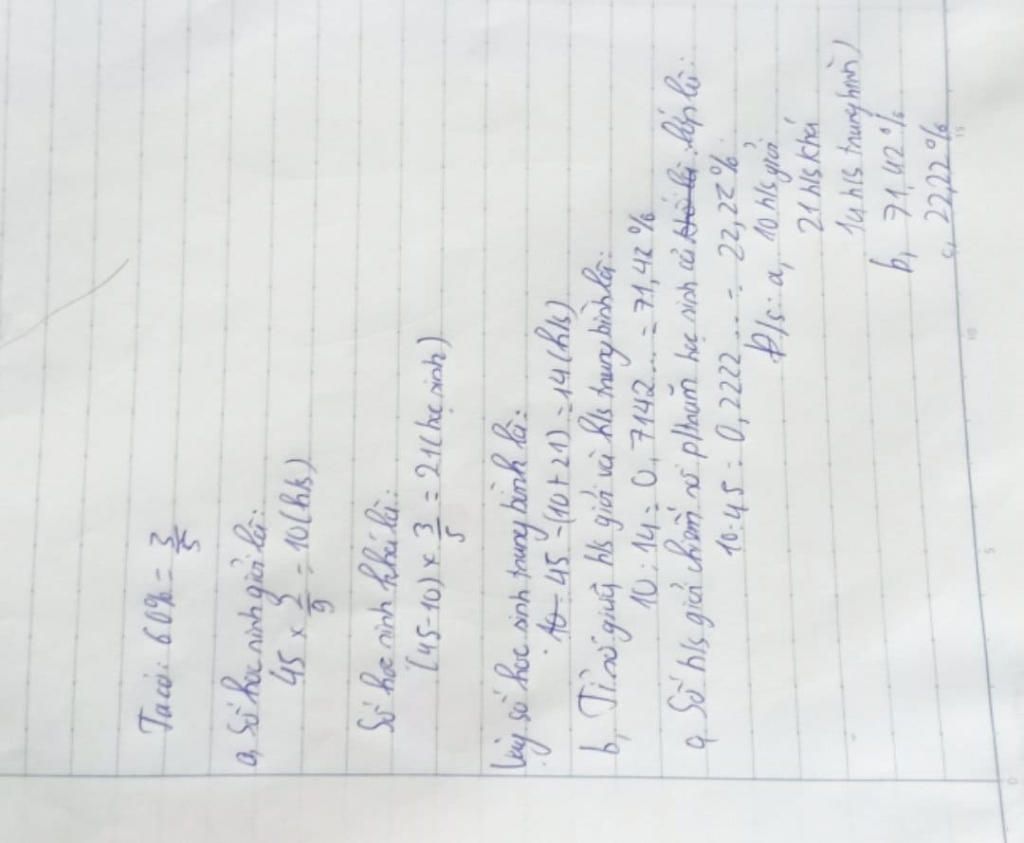 Ta có: 60% = 3/5
a, Số học sinh giỏi là:
45 x 2/9 = 10 (h/s)
Số học sinh khá là:
(45-10) x 3/5 = 21 (học sinh)
Vậy số học sinh trung bình là:
45 - (10 + 21) = 14 (h/s)
b, Tỉ số giữa h/s giỏi và h/s trung bình là:
10 : 14 = 0,7142... = 71,42 %
Số h/s giỏi chiếm số p/trăm học sinh cả lớp là:
10:45 = 0,2222... = 22,22 %
Đ/s: a, 10 h/s giỏi
21 h/s khá
14 h/s trung bình
b, 71,42 %
c, 22,22 %